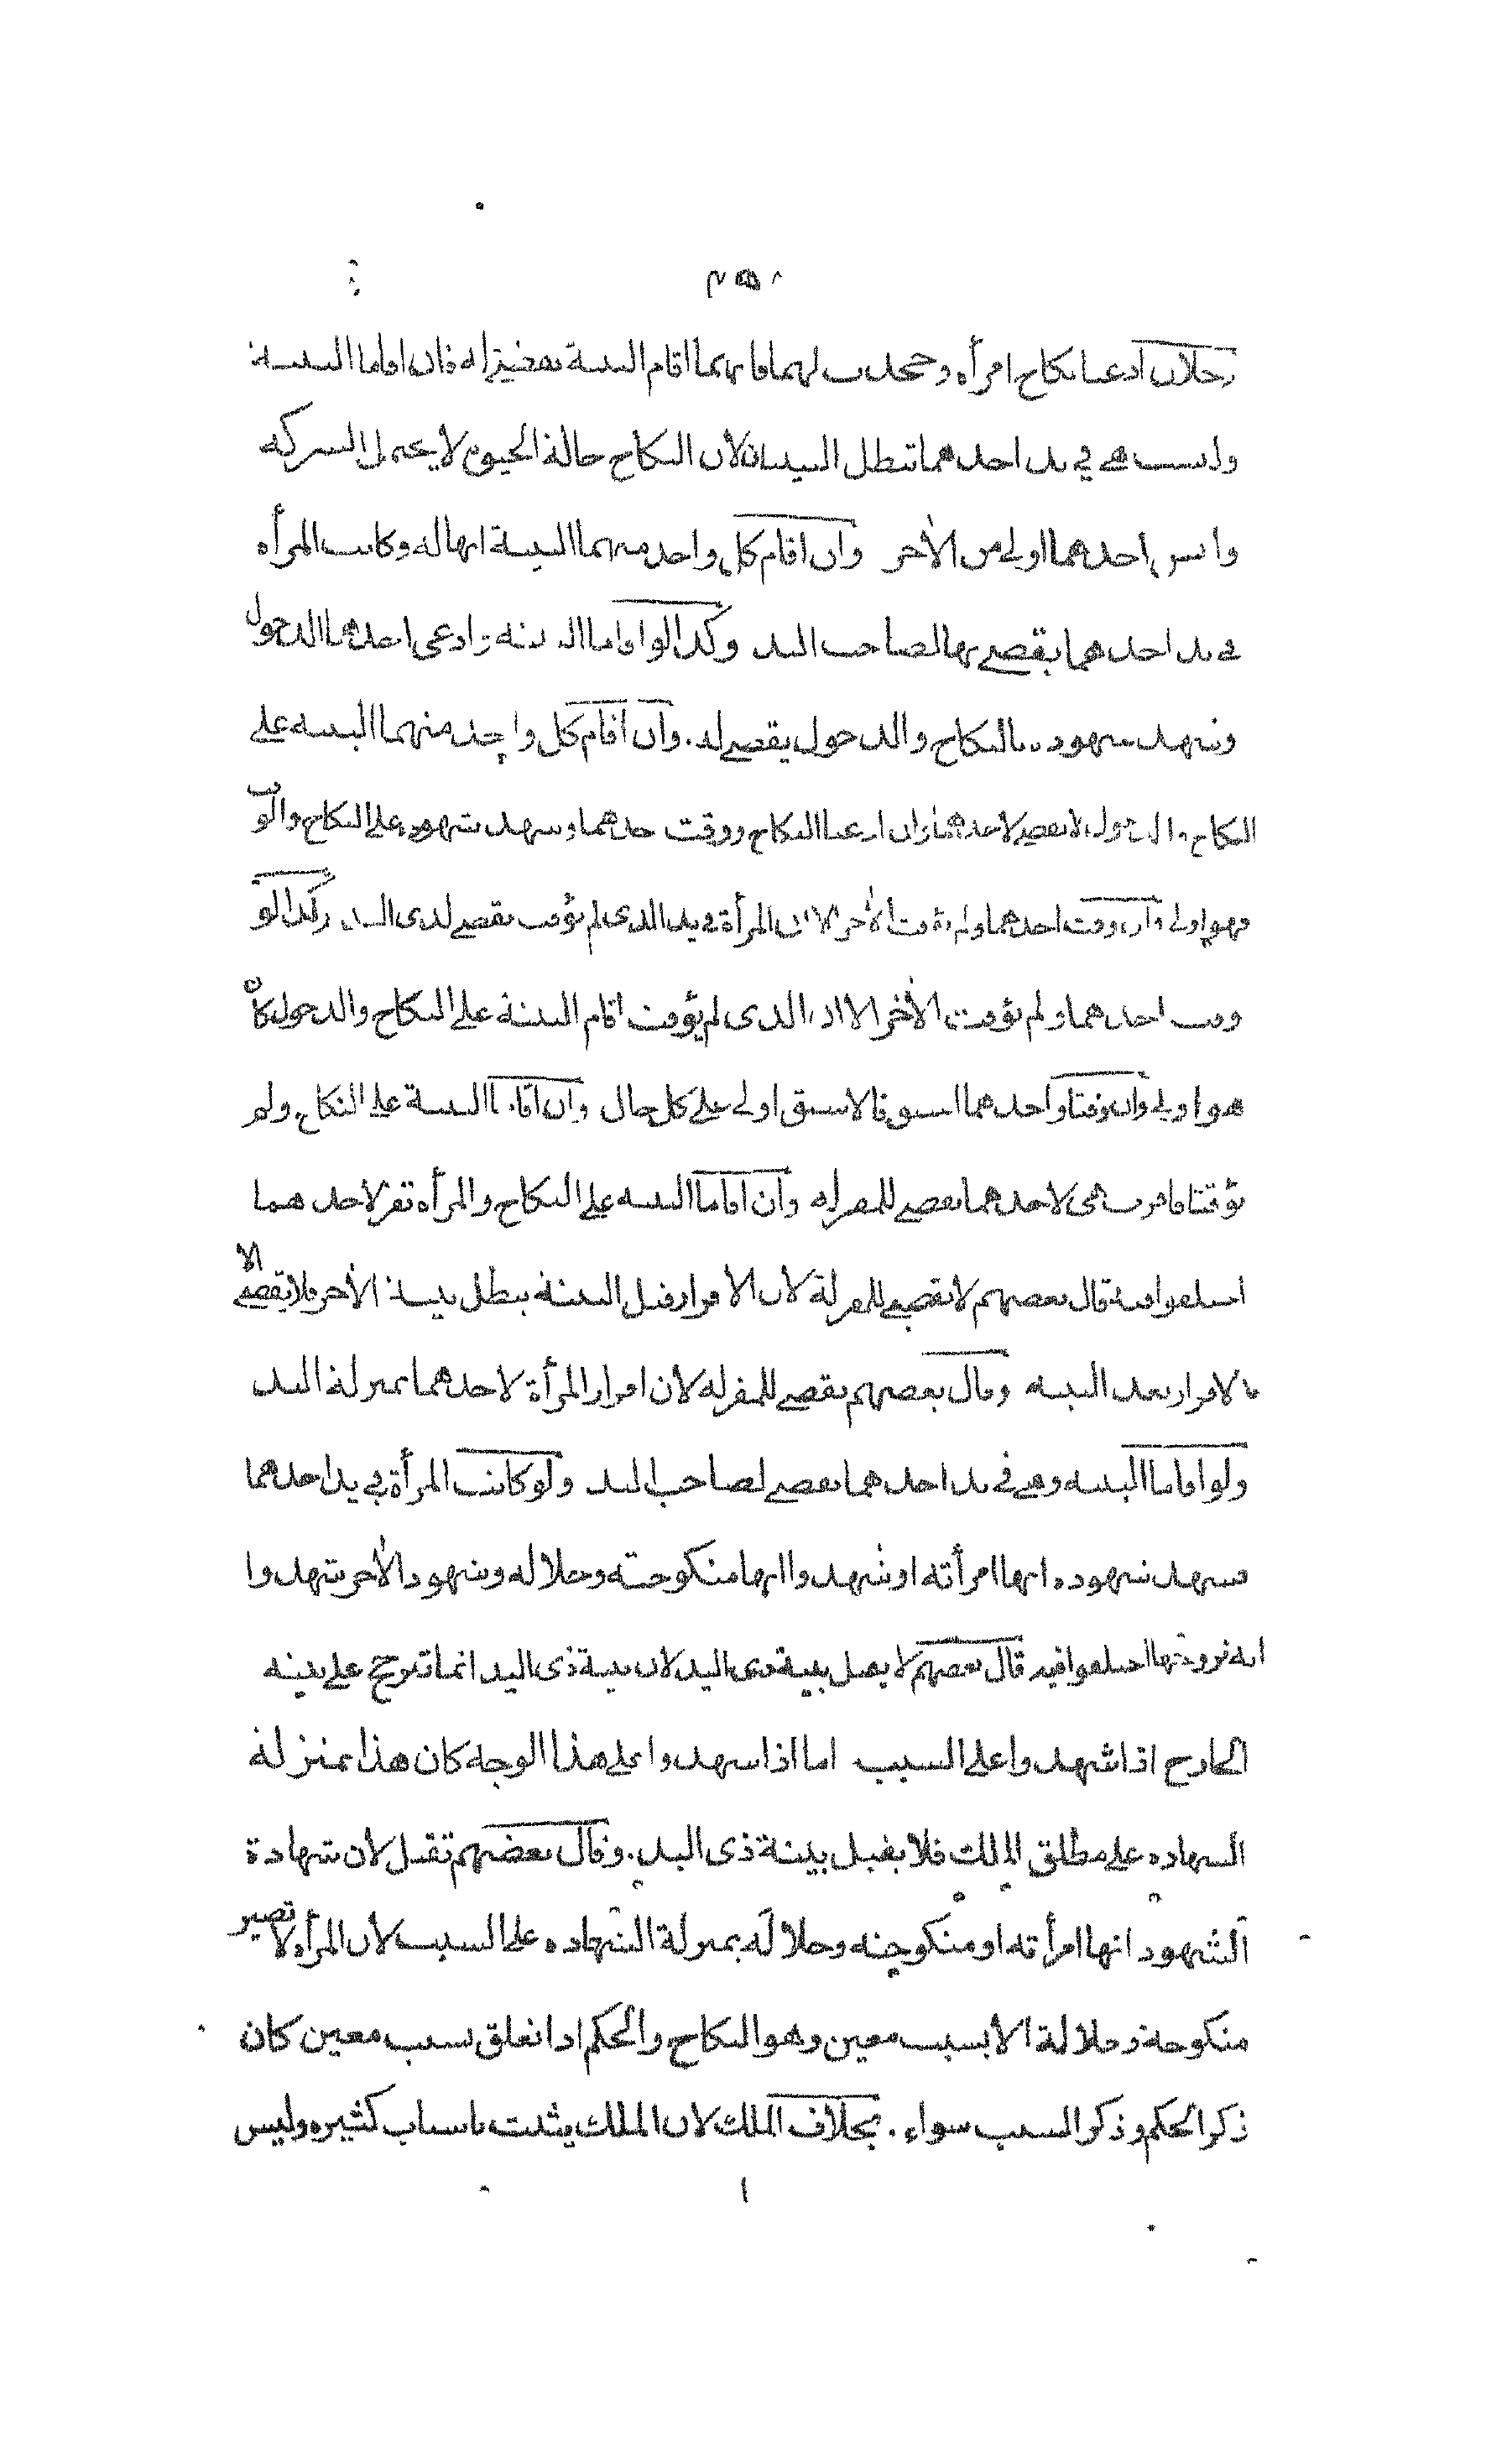 رجلان ادعيا نكاح امرأه وجحدت لهما فايهما اقام البينة يقضى له فان اقاما البينة
وليست هي في يد احدهما تبطل البينتان لان النكاح حالة الحيوة لا يحتمل الشركه
وليس احدهما اولى من الآخر وان اقام كل واحد منهما البينة انها له وكانت المرأه
في يد احدهما يقضى بها لصاحب اليد وكذا لو اقاما البينه وادعى احدهما الدخول
وشهد شهوده بالنكاح والدخول يقضى له. وان اقام كل واحد منهما البينه على
النكاح والدخول لا يقضى لاحدهما وان ادعيا النكاح ووقت احدهما وشهد شهوده على النكاح والوقت
فهو اولى وان وقت احدهما ولم يؤقت الآخر الا ان المرأة في يد الذى لم يؤقت يقضى لذى اليد وكذا لو
وقت احدهما ولم يؤقت الآخر الا ان الذى لم يؤقت اقام البينة على النكاح والدخول كان
هو اولى وان وقتا واحدهما اسبق فالاسبق اولى على كل حال وان اقاما البينة على النكاح ولم
يؤقتا فاقرت هى لاحدهما يقضى للمقر له وان اقاما البينه على النكاح والمرأه تقر لاحدهما
اختلفوا فيه قال بعضهم لا يقضى للمقر له لان الاقرار قبل البينة يبطل ببينة الآخر فلا يقضى الا
بالاقرار بعد البينه وقال بعضهم يقضى للمقر له لان اقرار المرأة لاحدهما بمنزلة اليد
ولو اقاما البينه وهي في يد احدهما يقضى لصاحب اليد ولو كانت المرأة في يد احدهما
فشهد شهوده انها امرأته او شهدوا انها منكوحته وحلاله وشهود الآخر شهدوا
انه تزوجها اختلفوا فيه قال بعضهم لا يقبل بينة ذى اليد لان بينة ذى اليد انما تترجح على بينه
الخارج اذا شهدوا على السبب اما اذا شهدوا على هذا الوجه كان هذا بمنزلة
الشهاده على مطلق الملك فلا يقبل بينة ذى اليد. وقال بعضهم تقبل لان شهادة
الشهود انها امرأته او منكوحته وحلاله بمنزلة الشهاده على السبب لان المرأه لا تصير
منكوحة وحلالة الا بسبب معين وهو النكاح والحكم اذا تعلق بسبب معين كان
ذكر الحكم وذكر السبب سواء. بخلاف الملك لان الملك يثبت باسباب كثيره وليس